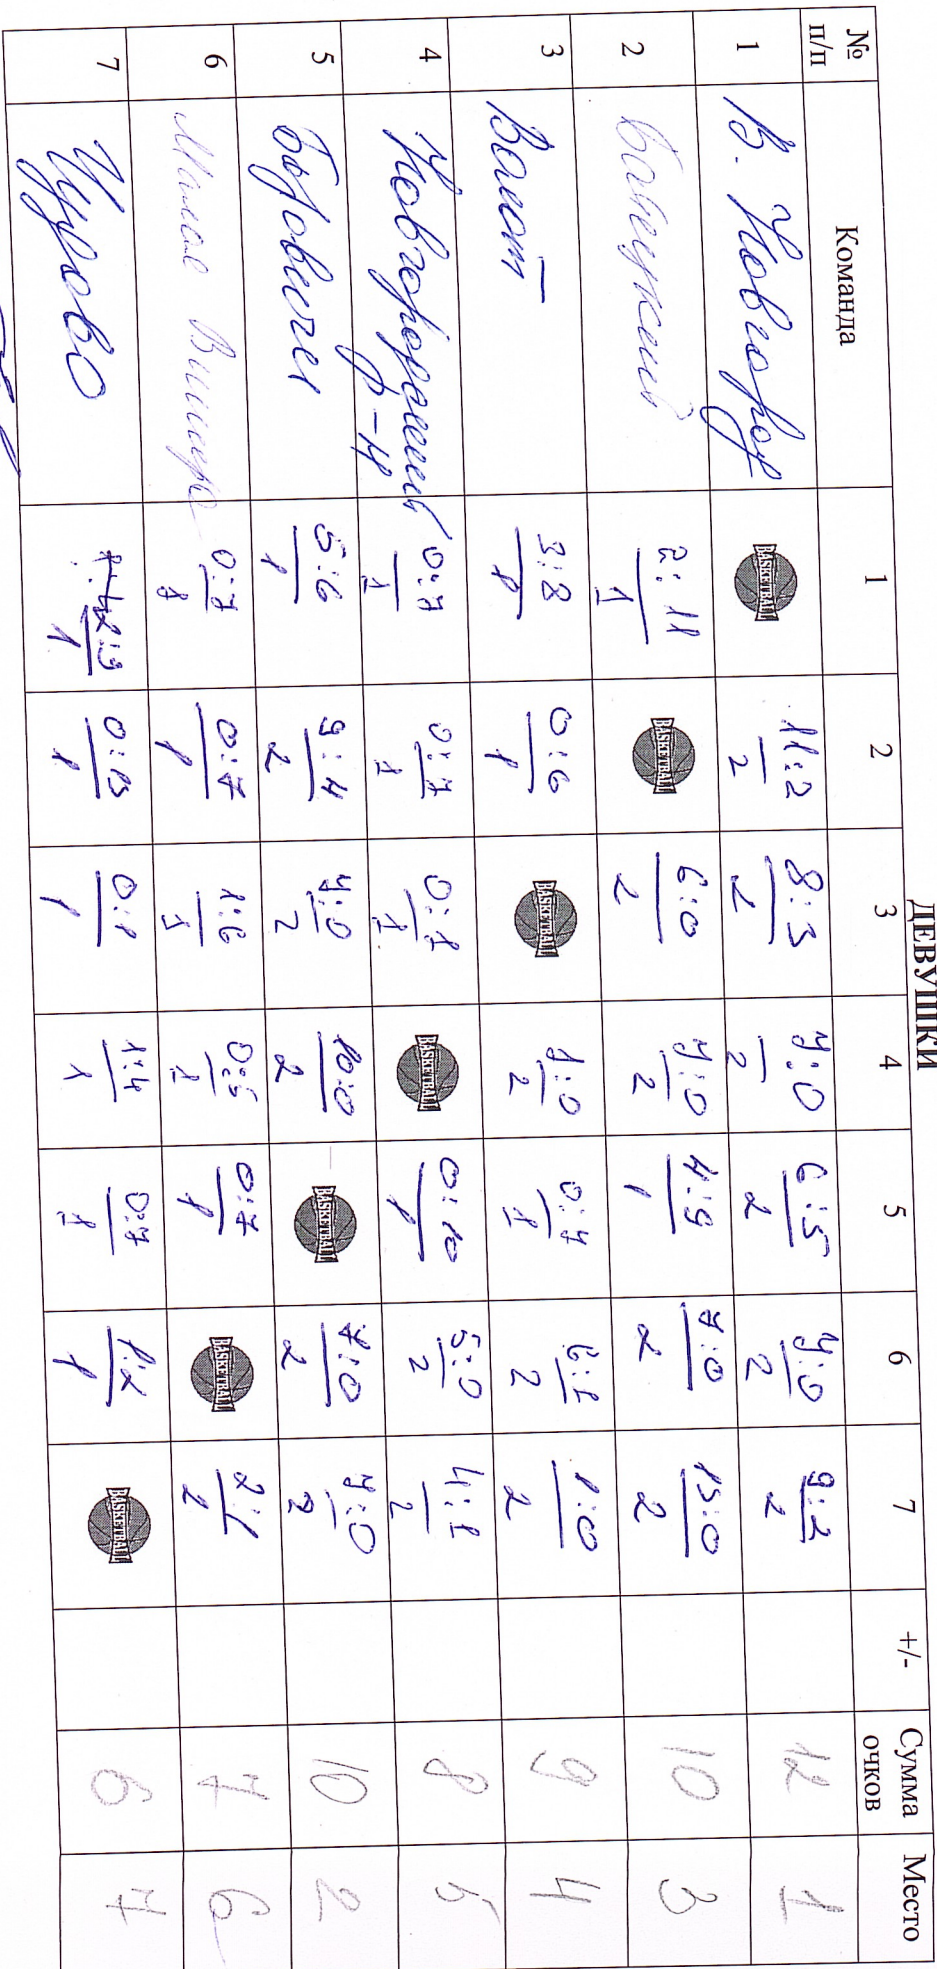 ДЕВУШКИ
№ п/п Команда 1 2 3 4 5 6 7 +/- Сумма очков Место
1 В. Новгород BASKETBALL 11:2 2 8:3 2 7:0 2 6:5 2 7:0 2 9:2 2 12 1
2 2:11 1 BASKETBALL 6:0 2 7:0 2 4:9 1 7:0 2 13:0 2 10 3
3 Волот 3:8 1 0:6 1 BASKETBALL 1:0 2 0:7 1 6:1 2 1:0 2 9 4
4 Новгородский р-н 0:7 1 0:7 1 0:1 1 BASKETBALL 0:10 1 5:0 2 4:1 2 8 5
5 Боровичи 5:6 1 9:4 2 7:0 2 10:0 2 BASKETBALL 7:0 2 7:0 2 10 2
6 Малая Вишера 0:7 1 0:7 1 1:6 1 0:5 1 0:7 1 BASKETBALL 2:1 2 7 6
7 2:9 1 0:13 1 0:1 1 1:4 1 0:7 1 1:2 1 BASKETBALL 6 7